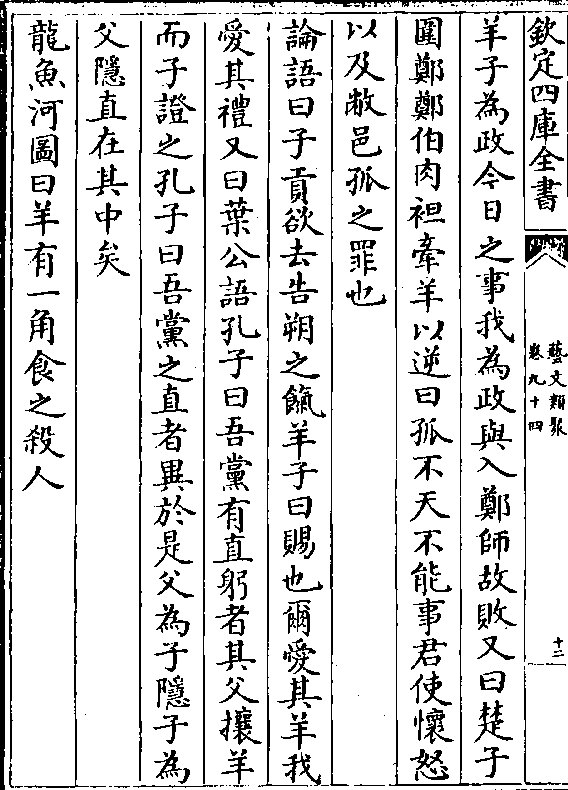 欽定四庫全書
藝文類聚
卷九十四
十二
羊子為政今日之事我為政與入鄭師故敗又曰楚子
圍鄭鄭伯肉袒牽羊以逆曰孤不天不能事君使懷怒
以及敝邑孤之罪也
論語曰子貢欲去告朔之餼羊子曰賜也爾愛其羊我
愛其禮又曰葉公語孔子曰吾黨有直躬者其父攘羊
而子證之孔子曰吾黨之直者異於是父為子隱子為
父隱直在其中矣
龍魚河圖曰羊有一角食之殺人